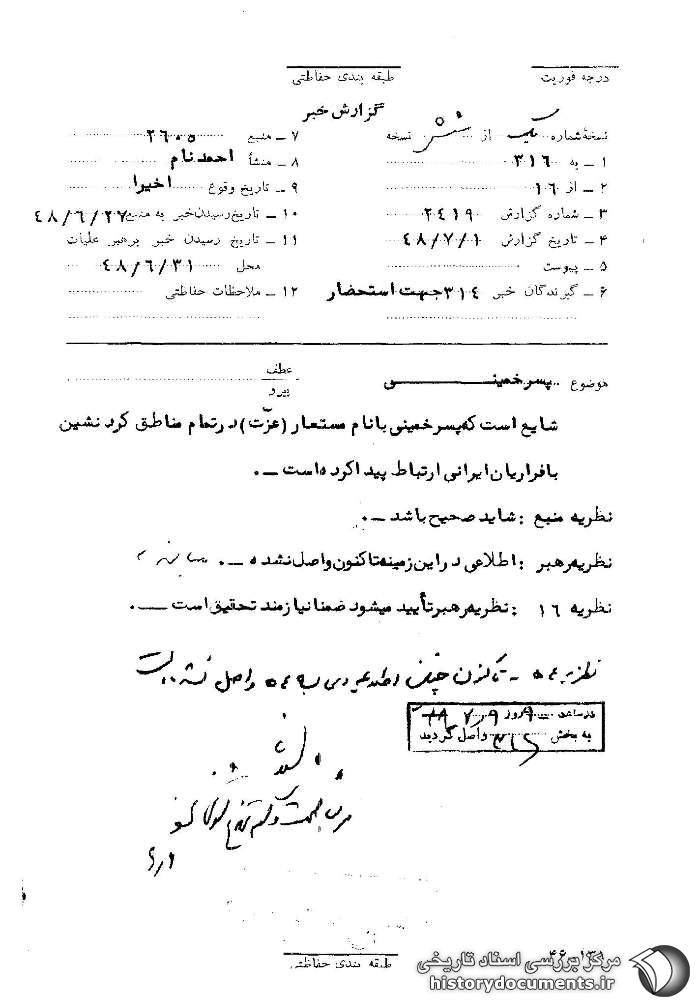 درجه فوریت
طبقه بندی حفاظتی
گزارش خبر
نسخهٔ شماره یک از شش نسخه
۷ ـ منبع ۲۶۰۵
۱ ـ به ۳۱۶
۸ ـ منشأ احمدنام
۲ ـ از ۱۶
۹ ـ تاریخ وقوع اخیرا
۳ ـ شماره گزارش ۲۴۱۹
۱۰ ـ تاریخ رسیدن خبر به منبع ۴۸/۶/۲۷
۴ ـ تاریخ گزارش ۴۸/۷/۱
۱۱ ـ تاریخ رسیدن خبر برهبر عملیات
۵ ـ پیوست
محل ۴۸/۶/۳۱
۶ ـ گیرندگان خبر ۳۱۴ جهت استحضار
۱۲ ـ ملاحظات حفاظتی
موضوع پسر خمینی
عطف
پیرو
شایع است که پسر خمینی با نام مستعار (عزّت) در تمام مناطق کرد نشین
با فراریان ایرانی ارتباط پیدا کرده است ـ.
نظریه منبع : شاید صحیح باشد ـ.
نظریه رهبر : اطلاعی در این زمینه تاکنون واصل نشده ـ.
نظریه ۱۶ : نظریه رهبر تأیید میشود ضمنا نیازمند تحقیق است ـ.
تاکنون چنین واصل نشده
در ساعت روز
به بخش واصل گردید
طبقه بندی حفاظتی
مرکز بررسی اسناد تاریخی
historydocuments.ir